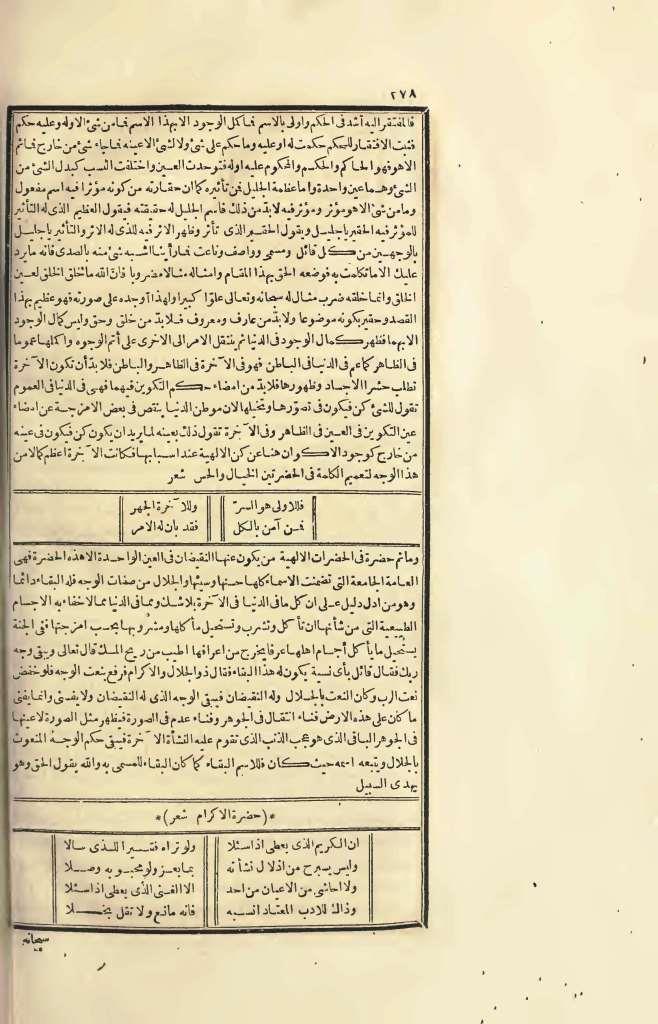 ٢٧٨
فالمفتقر اليه أشد فى الحكم واولى بالاسم فما كمل الوجود الا بهذا الاسم فما من شئ الاوله وعليه حكم
فثبت الافتقار للحكم حكمت له او عليه وما حكم على شئ ولا لشئ الاعينه فما جاءه شئ من خارج فما ثم
الاهو فهو الحاكم والحكم والمحكوم عليه اوله فتوحدت العين واختلفت النسب كبدل الشئ من
الشئ وهما عين واحدة واما عظمة الجليل فمن تأثيره كما ان حقارته من كونه مؤثرا فيه اسم مفعول
وما من شئ الاهو مؤثر ومؤثر فيه لابد من ذلك فاسم الجليل له حقيقته فيقول العظيم الذى له التأثير
للمؤثر فيه الحقير يا جليل ويقول الحقير الذى تأثر وظهر الاثر فيه للذى له الاثر والتأثير يا جليل
بالوجهين من كل قائل ومسمى وواصف وناعت فما رأينا اشبه شئ منه بالصدى فانه ما يرد
عليك الا ما تكلمت به فوضعه الحق بهذا المقام وامثاله مثالا مضروبا فان الله ما خلق الخلق لعين
الخلق وانما خلقه ضرب مثال له سبحانه وتعالى علوا كبيرا ولهذا أوجده على صورته فهو عظيم بهذا
القصد وحقير بكونه موضوعا ولابد من عارف ومعروف فلابد من خلق وحق وليس كمال الوجود
الا بهما فظهر كمال الوجود فى الدنيا ثم ينتقل الامر الى الاخرى على أتم الوجوه واكملها عموما
فى الظاهر كما عم فى الدنيا فى الباطن فهو فى الآخرة فى الظاهر والباطن فلابد أن تكون الآخرة
تطلب حشر الاجساد وظهورها فلابد من امضاء حكم التكوين فيهما فهى فى الدنيا فى العموم
تقول للشئ كن فيكون فى تصورها وتخيلها لان موطن الدنيا ينقص فى بعض الامزجة عن امضاء
عين التكوين فى العين فى الظاهر وفى الآخرة تقول ذلك بعينه لما يريد ان يكون كن فيكون فى عينه
من خارج كوجود الاكوان هنا عن كن الالهية عند اسبابها فكانت الآخرة اعظم كمالا من
هذا الوجه لتعميم الكلمة فى الحضرتين الخيال والحس شعر
فللاولى هو السر وللآخرة الجهر
فمن آمن بالكل فقد بان له الامر
وما ثم حضرة فى الحضرات الالهية من يكون عنها النقيضان فى العين الواحدة الاهذه الحضرة فهى
العامة الجامعة التى تضمنت الاسماء كلها حسنها وسيئها والجلال من صفات الوجه فله البقاء دائما
وهو من ادل دليل على ان كل ما فى الدنيا فى الآخرة بلاشك ومما فى الدنيا مما لاخفاء به الاجسام
الطبيعية التى من شأنها ان تأكل وتشرب وتستحيل مأكلها ومشربها بحسب امزجتها ففى الجنة
يستحيل ما يأكل أجسام اهلها عرقا يخرج من اعراقها اطيب من ريح المسك قال تعالى ويبقى وجه
ربك فقال قائل بأى نسبة يكون له هذا البقاء فقال ذو الجلال والاكرام فرفع بنعت الوجه فلو خفض
نعت الرب وكان النعت بالجلال وله النقيضان فيبقى الوجه الذى له النقيضان ولا يفنى وانما يفنى
ما كان على هذه الارض فناء انتقال فى الجوهر وفناء عدم فى الصورة فيظهر مثل الصورة لاعينها
فى الجوهر الباقى الذى هو عجب الذنب الذى تقوم عليه النشأة الآخرة فيبقى حكم الوجه المنعوت
بالجلال ويتبعه اسمه حيث كان فللاسم البقاء كما كان البقاء للمسمى به والله يقول الحق وهو
يهدى السبيل
*(حضرة الاكرام شعر)*
ان الكريم الذى يعطى اذا سئلا ولو تراه فقيرا للذى سالا
وليس يبرح من اذلال نشأته بما يعز ولو محبوبه وصلا
ولا احاشى من الاعيان من احد الا الفتى الذى يعطى اذا سئلا
وذاك للادب المعتاد انسبه فانه مانع ولا تقل بخلا
سبحانه